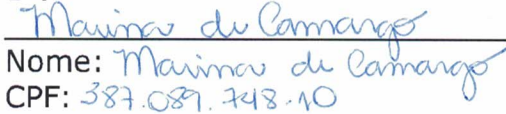 Marina de Camargo
Nome: Marina de Camargo
CPF: 387.089.748.10